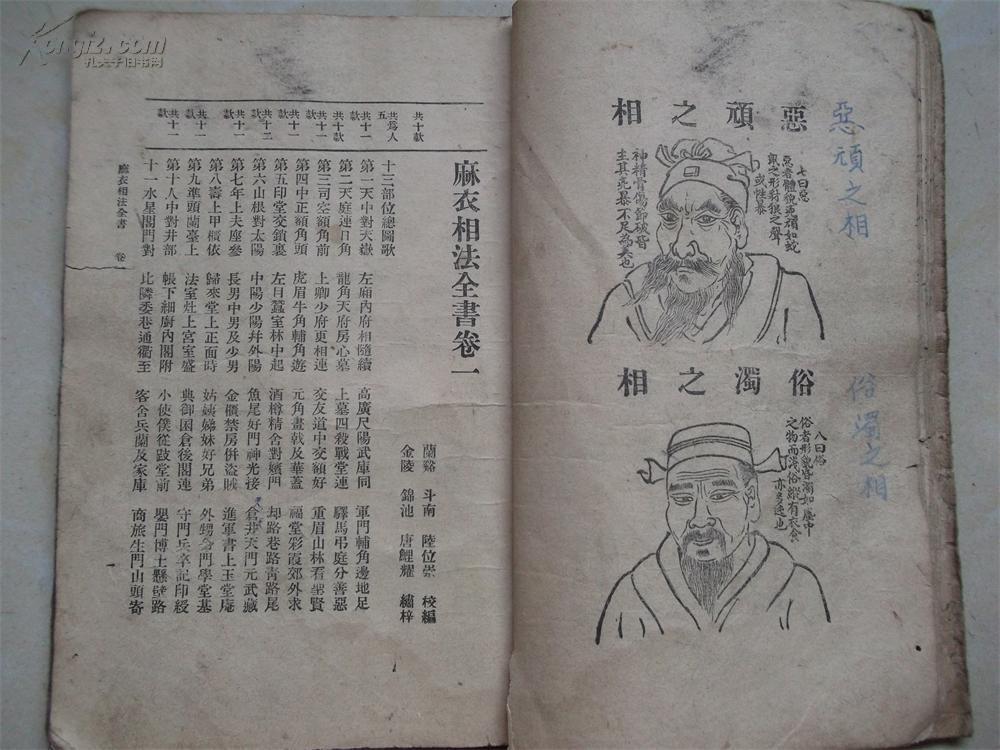 惡頑之相
七曰惡
惡者體貌兇頑如蛇
鼠之形豺狼之聲
或性暴
神精骨傷節破皆
主其兇暴不足為美也
惡頑之相
俗濁之相
八曰俗
俗者形貌昏濁如塵中
之物而淺俗縱有衣食
亦多迍也
俗濁之相
麻衣相法全書卷一
蘭谿 斗南 陸位崇 校編
金陵 錦池 唐鯉耀 繡梓
十三部位總圖歌
共十款
第一天中對天嶽 左廂內府相隨續 高廣尺陽武庫同 軍門輔角邊地足
共為人五
第二天庭連日角 龍角天府房心墓 上墓四殺戰堂連 驛馬弔庭分善惡
共十一款
第三司空額角前 上卿少府更相連 交友道中交額好 重眉山林看聖賢
共十款
第四中正額角頭 虎眉牛角輔角遊 元角畫戟及華蓋 福堂彩霞郊外求
共十一款
第五印堂交鎖裏 左目蠶室林中起 酒樽精舍對嬪門 却路巷路青路尾
共十一款
第六山根對太陽 中陽少陽幷外陽 魚尾好門神光接 倉井天門元武藏
共十二款
第七年上夫座參 長男中男及少男 金櫃禁房併盜賊 進軍書上玉堂庵
共十一款
第八壽上甲櫃依 歸來堂上正面時 姑姨娣妹好兄弟 外甥命門學堂基
共十一款
第九準頭蘭臺上 法室灶上宮室盛 典御囷倉後閣連 守門兵卒記印綬
共十一款
第十人中對井部 帳下細廚內閣附 小使僕從跂堂前 嬰門博士懸壁路
十一水星閣門對 比隣委巷通衢至 客舍兵蘭及家庫 商旅生門山頭寄
麻衣相法全書 卷一
kongfz.com
孔夫子旧书网